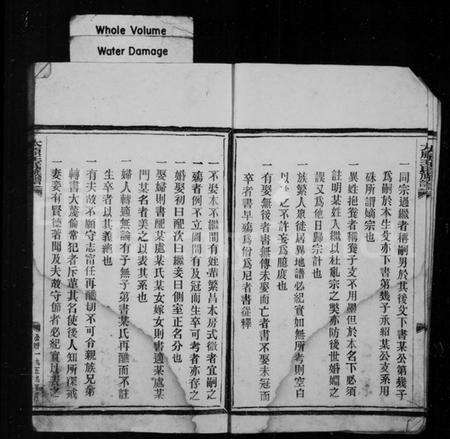 Whole Volume
Water Damage
一同宗過繼者稱嗣男於其後父下書某公第幾子
爲嗣於本生父亦下書第幾子承紹某公支系用
硃所謂嫡宗也
一異姓抱養者稱養子支不用硃但於本名下必須
註明某姓入繼以杜亂宗之獘亦防後世婚姻之
誤又爲他日歸宗計也
一族繁人衆徙居異地譜必紀實如無所考則空白
以 之不許妄爲臆度也
一有娶無後者書無傳未娶而亡者書不娶未冠而
卒者書早殤爲僧爲尼者書從釋
一不娶本不繼間有姓蕃繁昌本房式微者宜嗣之
一殤者例不立圖間有及冠而生卒可考者亦存之
一婚娶初曰配次曰繼妾曰側室正名分也
一娶婦則書配某處某氏某女嫁女則書適某處某
門某名者美之以表其系也
一婦人轉適無論有子無子第書某氏再醮而不註
生卒者以其義絕也
一有夫故不願守志當任再醮切不可令親族兄弟
轉書大蔑倫常犯者斥革其名使後人知所深戒
一妻妾有賢德著聞及夫故守節者必紀實以書之